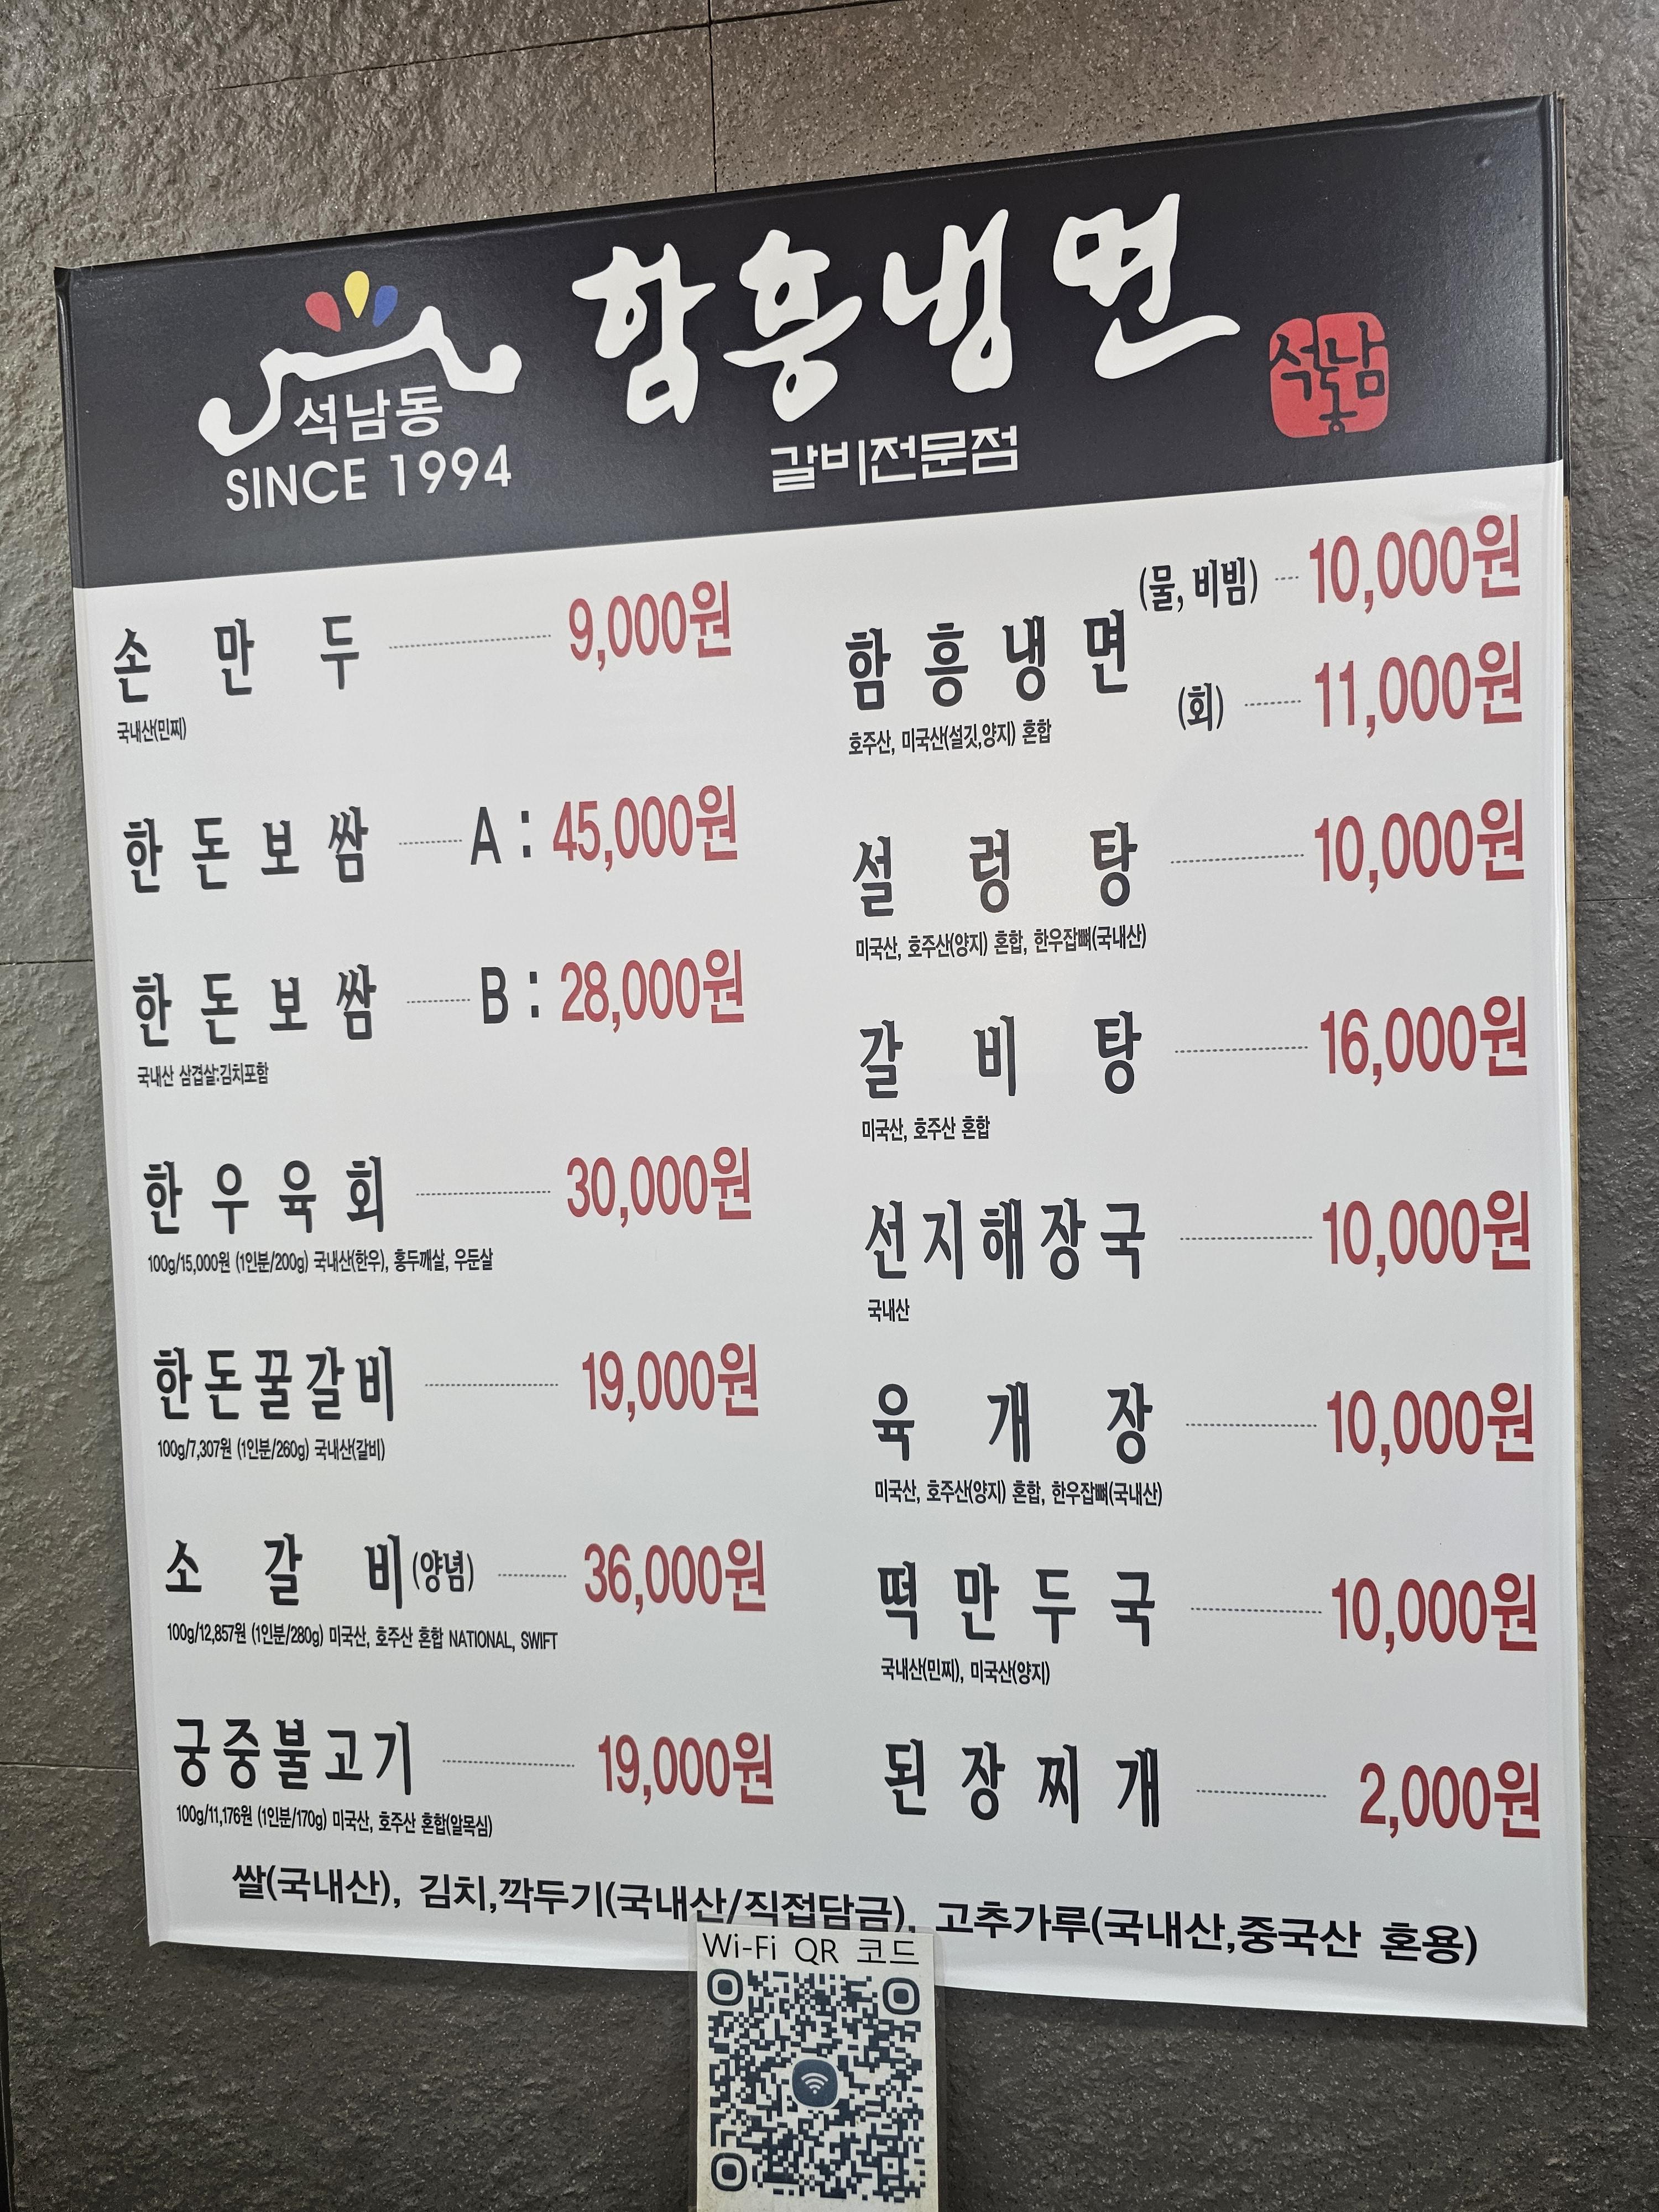 석남동
SINCE 1994
함흥냉면
갈비전문점
석남동
손만두 9,000원
국내산(민찌)
한돈보쌈 A : 45,000원
한돈보쌈 B : 28,000원
국내산 삼겹살:김치포함
한우육회 30,000원
100g/15,000원 (1인분/200g) 국내산(한우), 홍두깨살, 우둔살
한돈꿀갈비 19,000원
100g/7,307원 (1인분/260g) 국내산(갈비)
소갈비(양념) 36,000원
100g/12,857원 (1인분/280g) 미국산, 호주산 혼합 NATIONAL, SWIFT
궁중불고기 19,000원
100g/11,176원 (1인분/170g) 미국산, 호주산 혼합(알목심)
함흥냉면 (물, 비빔) 10,000원
(회) 11,000원
호주산, 미국산(설깃,양지) 혼합
설렁탕 10,000원
미국산, 호주산(양지) 혼합, 한우잡뼈(국내산)
갈비탕 16,000원
미국산, 호주산 혼합
선지해장국 10,000원
국내산
육개장 10,000원
미국산, 호주산(양지) 혼합, 한우잡뼈(국내산)
떡만두국 10,000원
국내산(민찌), 미국산(양지)
된장찌개 2,000원
쌀(국내산), 김치,깍두기(국내산/직접담금), 고추가루(국내산,중국산 혼용)
Wi-Fi QR 코드